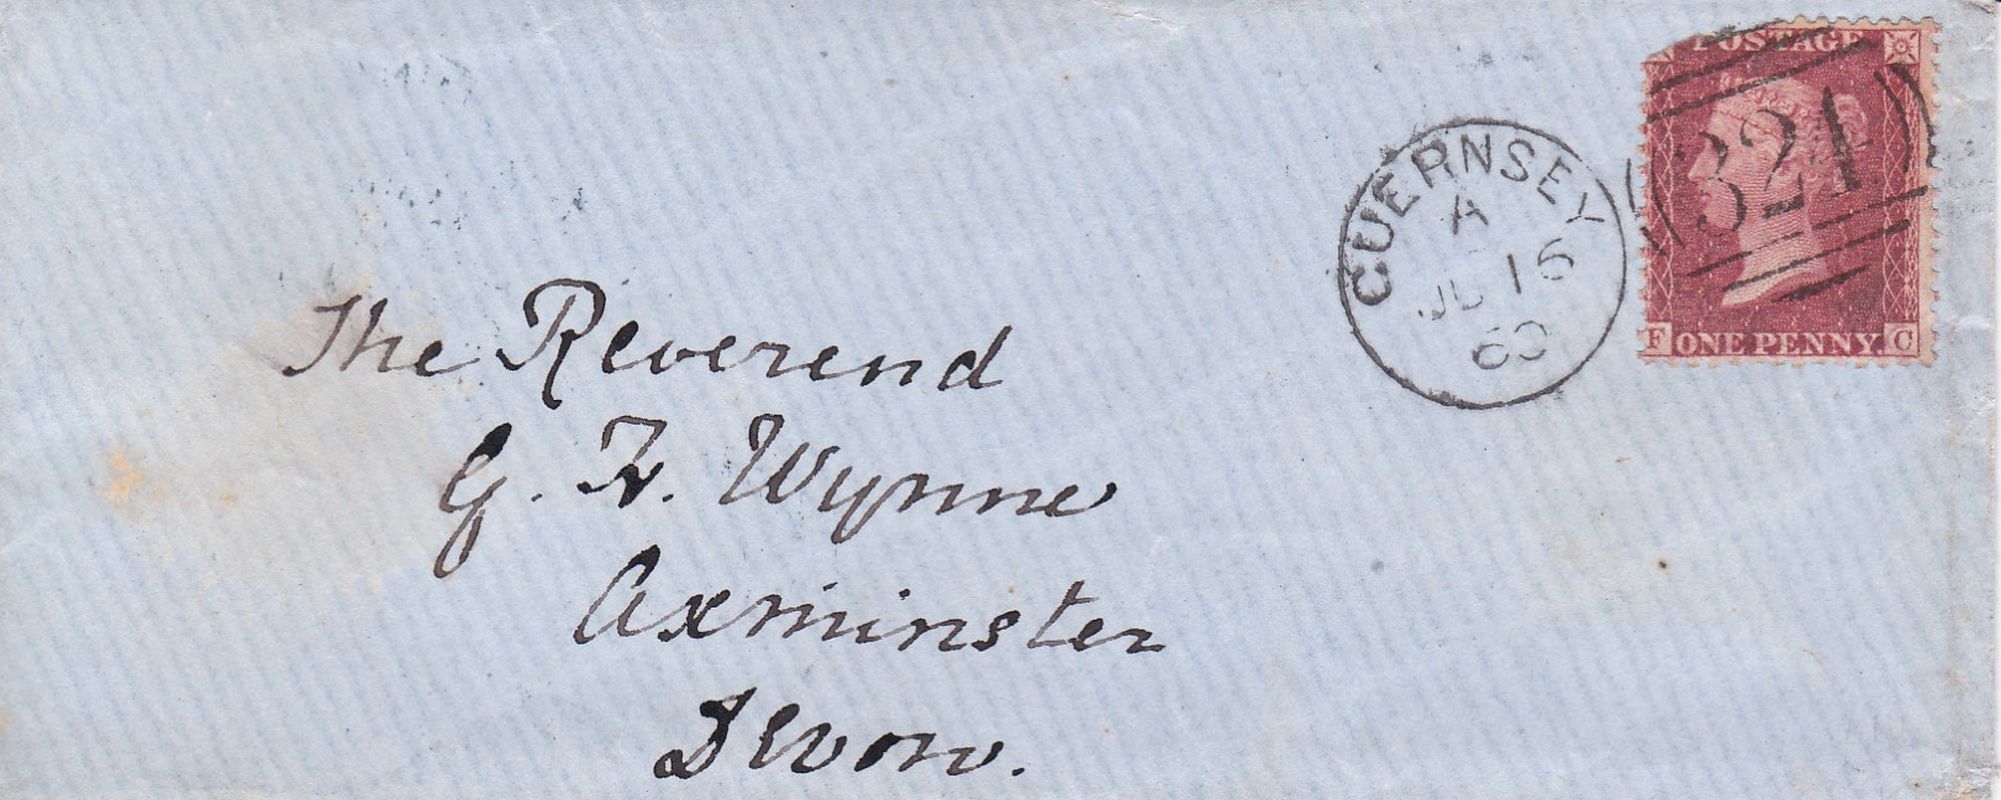 POSTAGE
321
GUERNSEY
A
JU 16
60
F ONE PENNY. C
The Reverend
G. F. Wynne
Axminster
Devon.